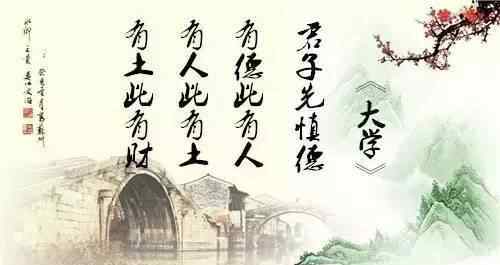 《大学》
君子先慎德
有德此有人
有人此有土
有土此有财